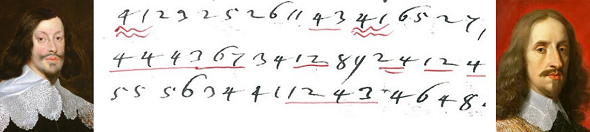 4 1 2 3 2 5 2 6 1 1 4 3 4 1 6 5 2 7,
4 4 4 3 6 7 3 4 1 2 8 9 2 4 1 2 4
5 5 5 6 3 4 4 1 1 2 4 3 4 6 4 8.